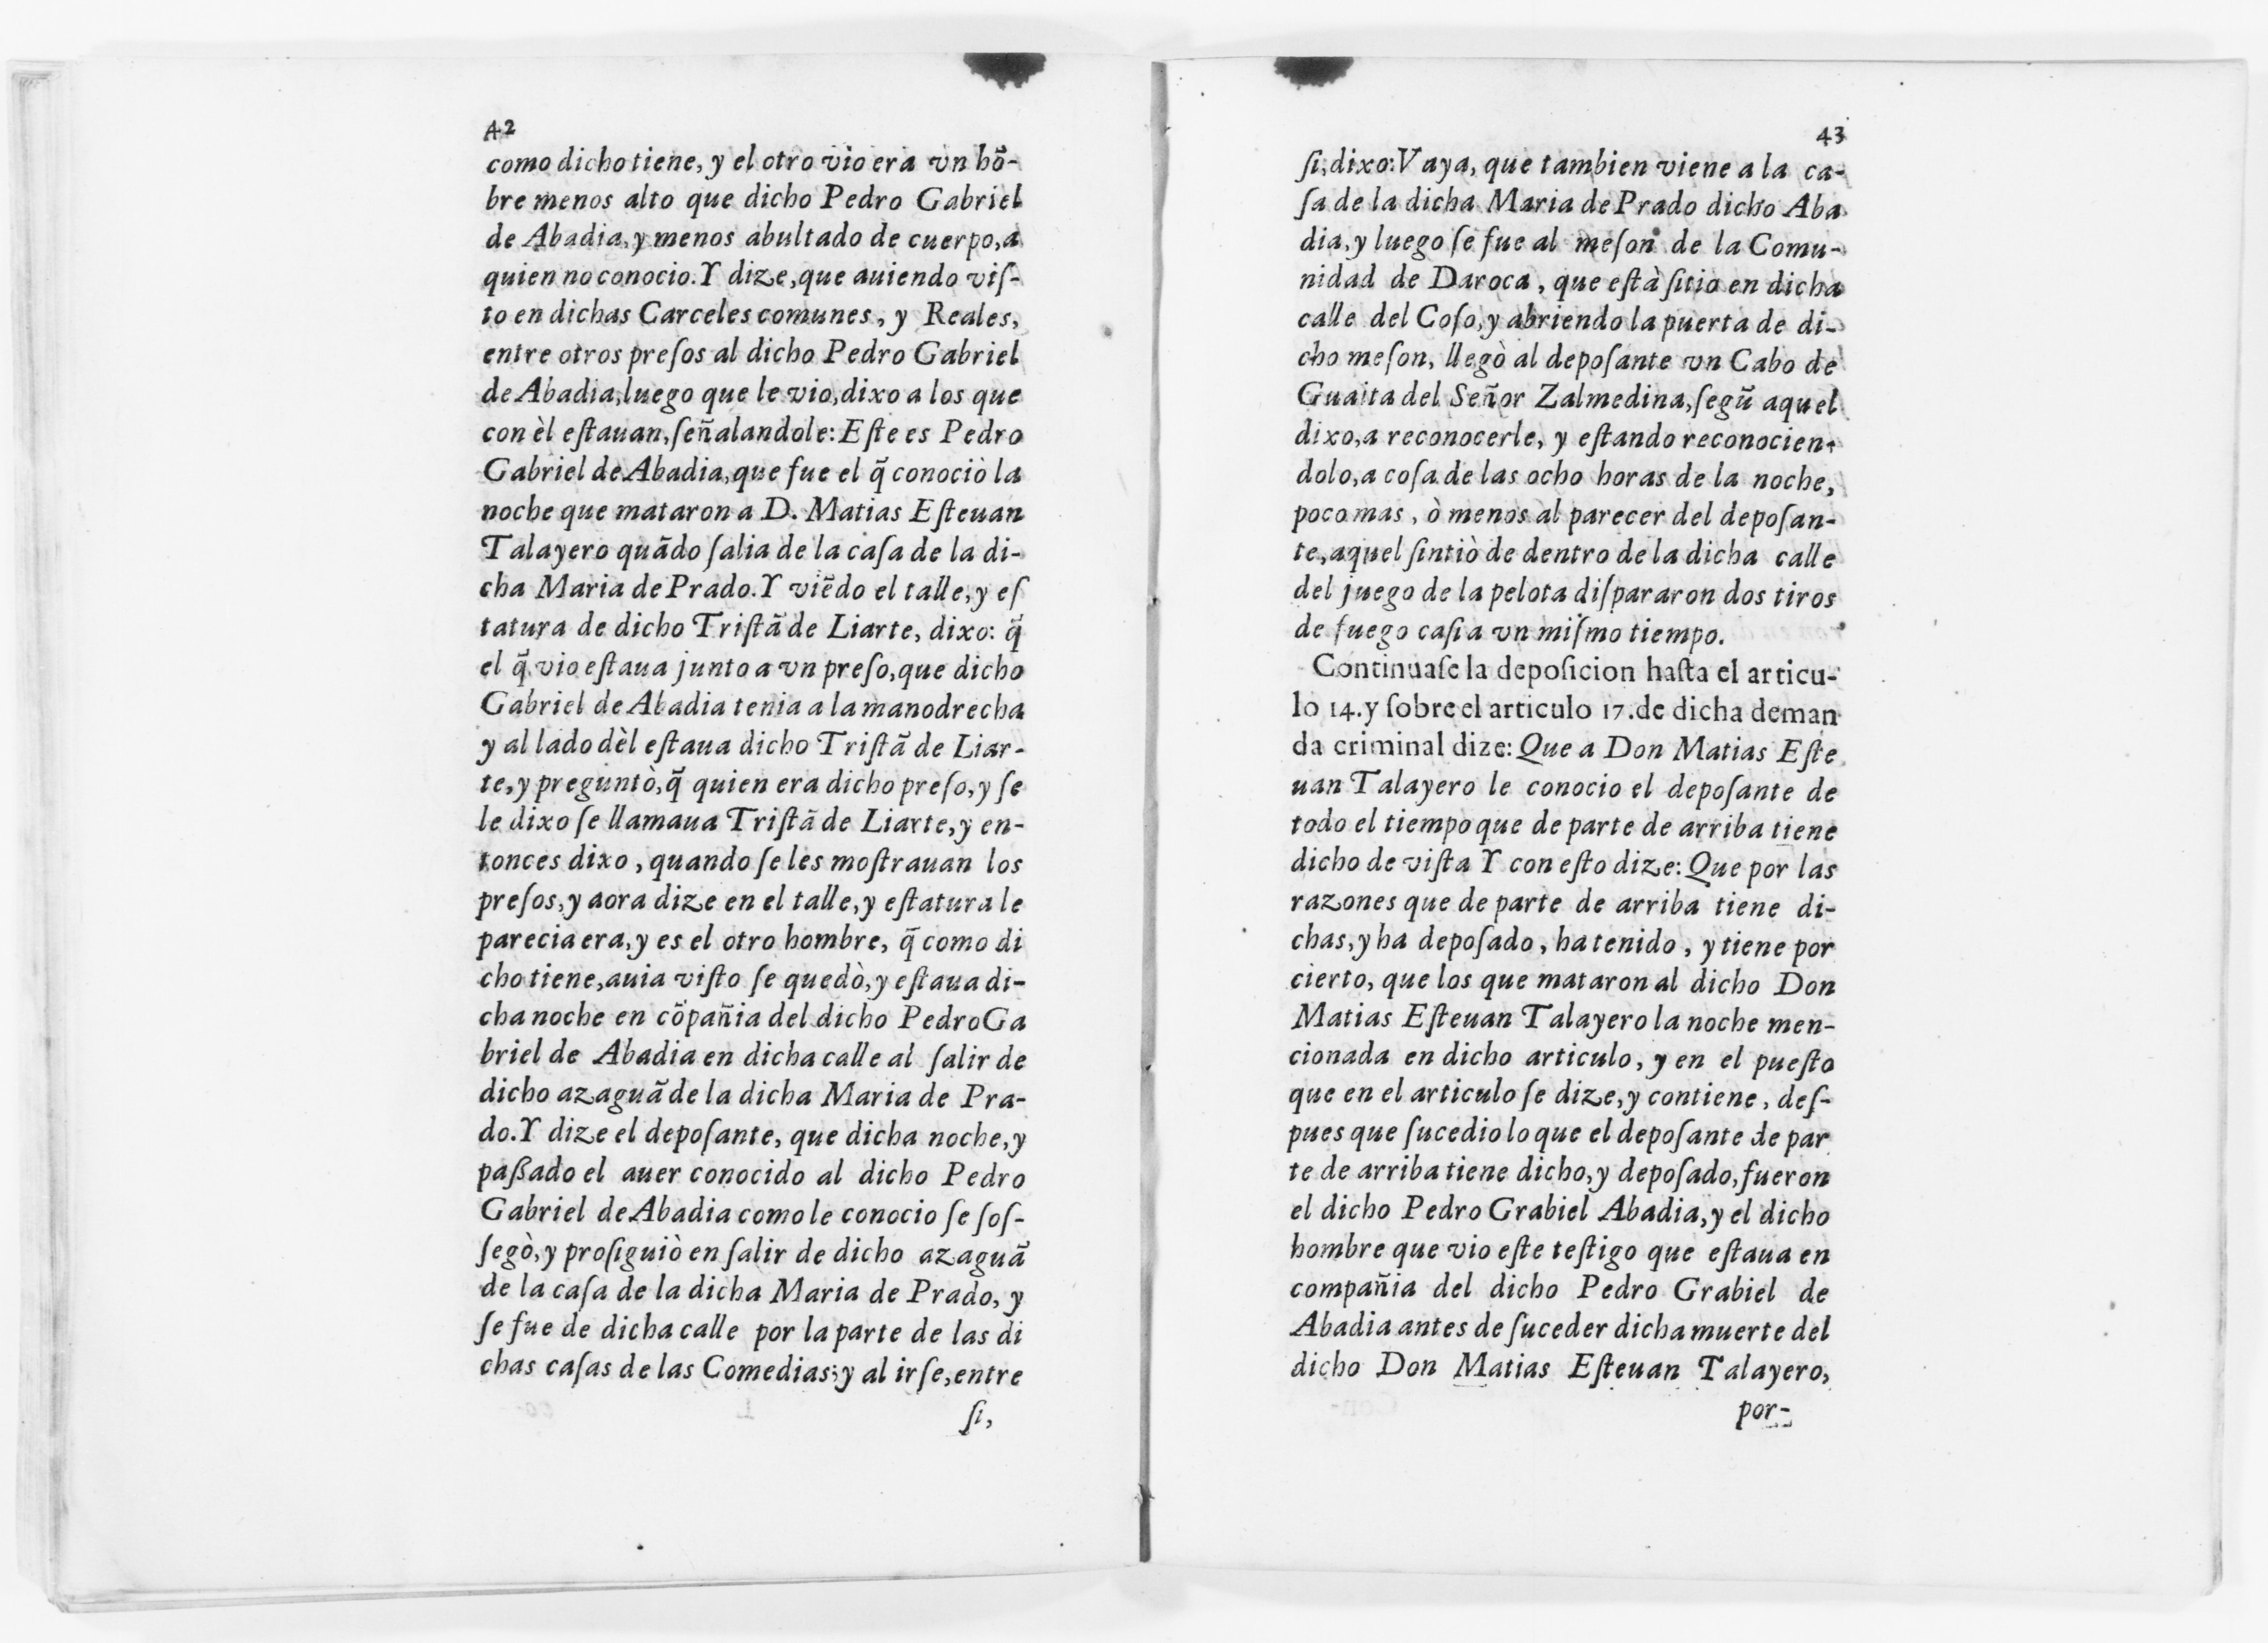 42
como dicho tiene, y el otro vio era vn hõ-
bre menos alto que dicho Pedro Gabriel
de Abadia, y menos abultado de cuerpo, a
quien no conocio. Y dize, que auiendo viſ-
to en dichas Carceles comunes, y Reales,
entre otros preſos al dicho Pedro Gabriel
de Abadia, luego que le vio, dixo a los que
con èl eſtauan, ſeñalandole: Eſte es Pedro
Gabriel de Abadia, que fue el q̃ conociò la
noche que mataron a D. Matias Eſteuan
Talayero quãdo ſalia de la caſa de la di-
cha Maria de Prado. Y viẽdo el talle, y eſ
tatura de dicho Triſtã de Liarte, dixo: q̃
el q̃ vio eſtaua junto a vn preſo, que dicho
Gabriel de Abadia tenia a la mano drecha
y al lado dèl eſtaua dicho Triſtã de Liar-
te, y preguntò, q̃ quien era dicho preſo, y ſe
le dixo ſe llamaua Triſtã de Liarte, y en-
tonces dixo, quando ſe les moſtrauan los
preſos, y aora dize en el talle, y eſtatura le
parecia era, y es el otro hombre, q̃ como di
cho tiene, auia viſto ſe quedò, y eſtaua di-
cha noche en cõpañia del dicho Pedro Ga
briel de Abadia en dicha calle al ſalir de
dicho azaguã de la dicha Maria de Pra-
do. Y dize el depoſante, que dicha noche, y
paßado el auer conocido al dicho Pedro
Gabriel de Abadia como le conocio ſe ſoſ-
ſegò, y proſiguiò en ſalir de dicho azaguã
de la caſa de la dicha Maria de Prado, y
ſe fue de dicha calle por la parte de las di
chas caſas de las Comedias; y al irſe, entre
ſi,
43
ſi, dixo: Vaya, que tambien viene a la ca-
ſa de la dicha Maria de Prado dicho Aba
dia, y luego ſe fue al meſon de la Comu-
nidad de Daroca, que eſtà ſitio en dicha
calle del Coſo, y abriendo la puerta de di-
cho meſon, llegò al depoſante vn Cabo de
Guaita del Señor Zalmedina, ſegũ aquel
dixo, a reconocerle, y eſtando reconocien-
dolo, a coſa de las ocho horas de la noche,
poco mas, ò menos al parecer del depoſan-
te, aquel ſintiò de dentro de la dicha calle
del juego de la pelota diſpararon dos tiros
de fuego caſi a vn miſmo tiempo.
Continuaſe la depoſicion haſta el articu-
lo 14. y ſobre el articulo 17. de dicha deman
da criminal dize: Que a Don Matias Eſte
uan Talayero le conocio el depoſante de
todo el tiempo que de parte de arriba tiene
dicho de viſta Y con eſto dize: Que por las
razones que de parte de arriba tiene di-
chas, y ha depoſado, ha tenido, y tiene por
cierto, que los que mataron al dicho Don
Matias Eſteuan Talayero la noche men-
cionada en dicho articulo, y en el pueſto
que en el articulo ſe dize, y contiene, deſ-
pues que ſucedio lo que el depoſante de par
te de arriba tiene dicho, y depoſado, fueron
el dicho Pedro Grabiel Abadia, y el dicho
hombre que vio eſte teſtigo que eſtaua en
compañia del dicho Pedro Grabiel de
Abadia antes de ſuceder dicha muerte del
dicho Don Matias Eſteuan Talayero,
por-